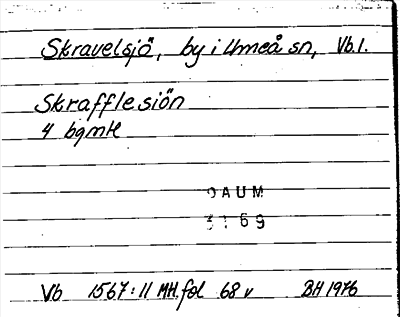 Skravelsjö, by i Umeå sn, Vb.l.
Skrafflesiön
4 bgmtl
DAUM
3169
Vb 1567:11 MH. fol 68 v BH 1976